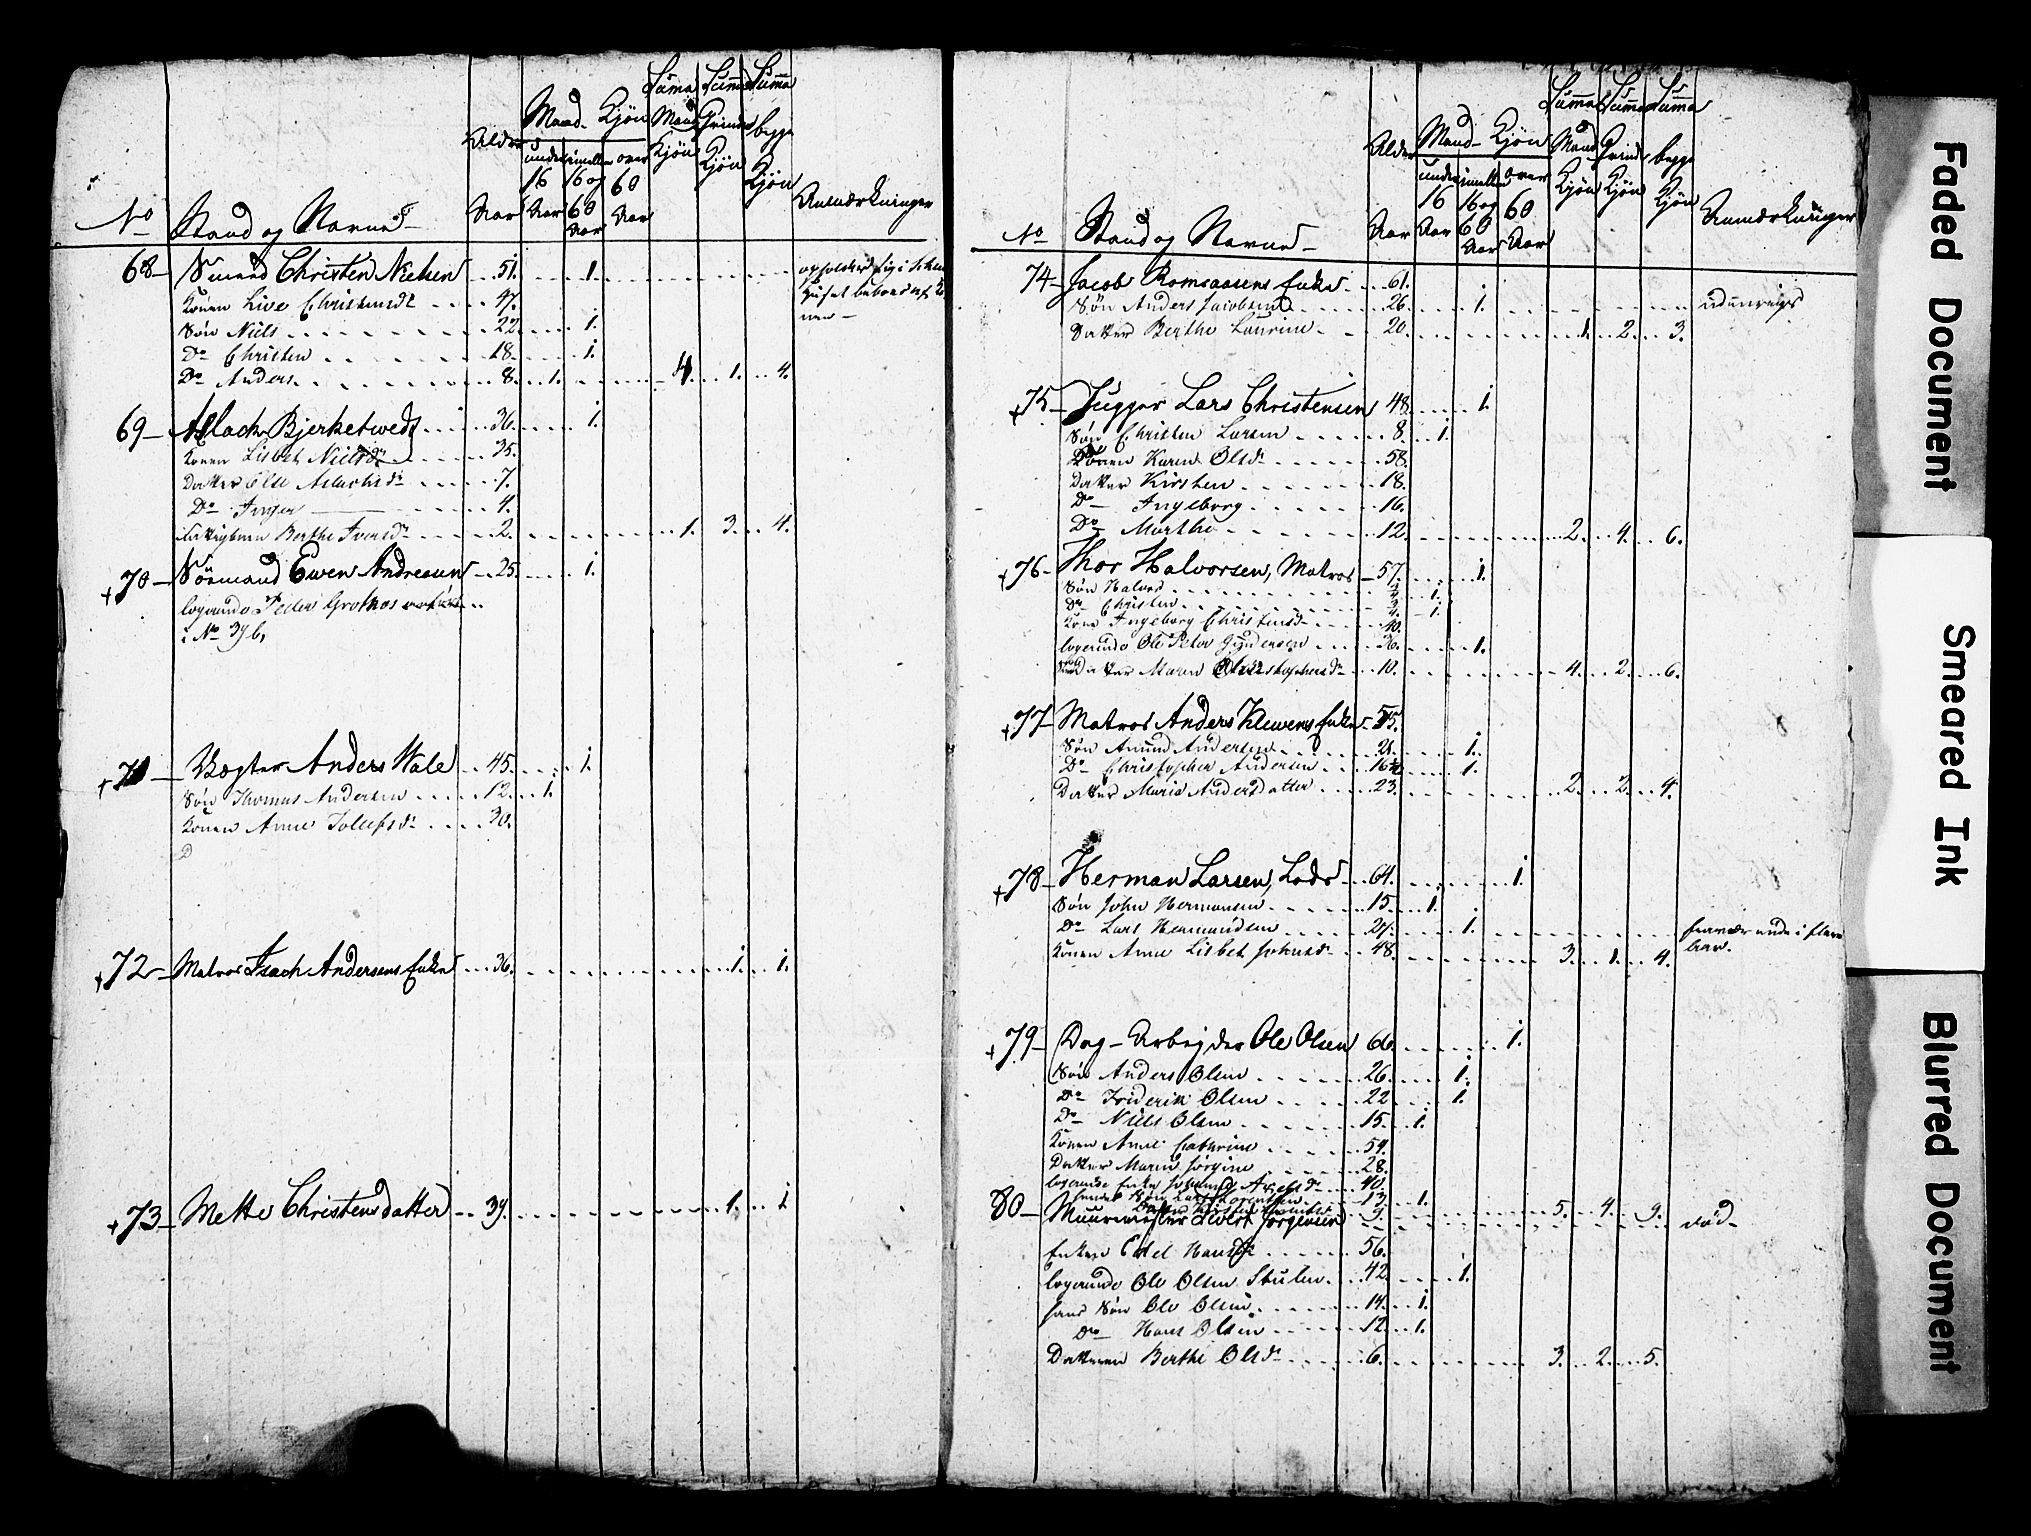 No Stand og Navne Alder Aar Mand-Kjön under 16 Aar imellem 16 og 60 Aar over 60 Aar Summa Mand Kjön Summa Qvinde Kjön Summa begge Kjön Anmærkninger
68 Smeed Christen Nielsen 51. 1.
Konen Live Christensdr 47.
Sön Niels 22. 1.
Do Christen 18. 1.
Do Anders 8. 1. 4. 1. 4.
69 Aslach Bjerketvedt 36. 1.
Konen Lisbet Nielsdr 35.
Datter Else Aslachsdr 7.
Do Inger 4.
Berthe Iversdr 2. 1. 3. 4.
+70 Sömand Even Andresen 25. 1.
logerende Peder Grothos
i No 37 b,
+71 Vægter Anders Wale 45. 1.
Sön Thomas Andersen 12. 1.
Konen Anne Tollefsdr 30.
D
+72 Matros Isach Andersens Enke 36. 1. 1.
+73 Mette Christensdatter 39. 1. 1
No Stand og Navne Alder Aar Mand-Kjön under 16 Aar imellem 16 og 60 Aar over 60 Aar Summa Mand Kjön Summa Qvinde Kjön Summa begge Kjön Anmærkninger
74 Jacob Romsaasens Enke 61.
Sön Anders Jacobsen 26. 1. udenrigs
Datter Berthe Laurine 20. 1. 2. 3.
+75 Lars Christensen 48. 1.
Sön Christen Larsen 8. 1.
Konen Karen Olsdr 58.
Datter Kirsten 18.
Do Ingeborg 16.
Do Marthe 12. 2. 4. 6.
+76 Thor Halvorsen, Matros 57. 1.
Sön Halvor 1.
Do Christen 1.
Kone Ingeborg Christensdr 40.
logerende Ole Peter Gundersen 36. 1.
Datter Maren Christophersdr 10. 4. 2. 6.
+77 Matros Anders Klevens Enke 55.
Sön Amund Andersen 21. 1.
Do Christopher Andersen 16 1.
Datter Marie Andersdatter 23. 2. 2. 4.
+78 Herman Larsen, Lods 64. 1.
Sön John Hermansen 15. 1.
Do Lars Hermandsen 24. 1. fraværende i
Konen Anne Lisbet Johnsdr 48. 3. 1. 4.
+79 Dag-Arbejder Ole Olsen 66. 1.
Sön Anders Olsen 26. 1.
Do Friderik Olsen 22. 1.
Do Niels Olsen 15. 1.
Konen Anne Cathrine 54.
Datter Maren Jörgine 28.
logerende Enke 40.
Sön Lars 13. 1.
9. 5. 4. 9.
80 Muurmester Evert Jörgensen död
Enken Edel Hansdr 56.
logerende Ole Olsen Stulen 42. 1.
hans Sön Ole Olsen 14. 1.
Do Hans Olsen 12. 1.
Datteren Berthe Olsdr 6. 3. 2. 5.
Faded Document
Smeared Ink
Blurred Document